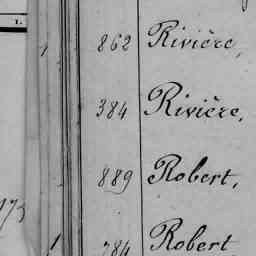 862 Rivière,
384 Rivière,
889 Robert,
784 Robert